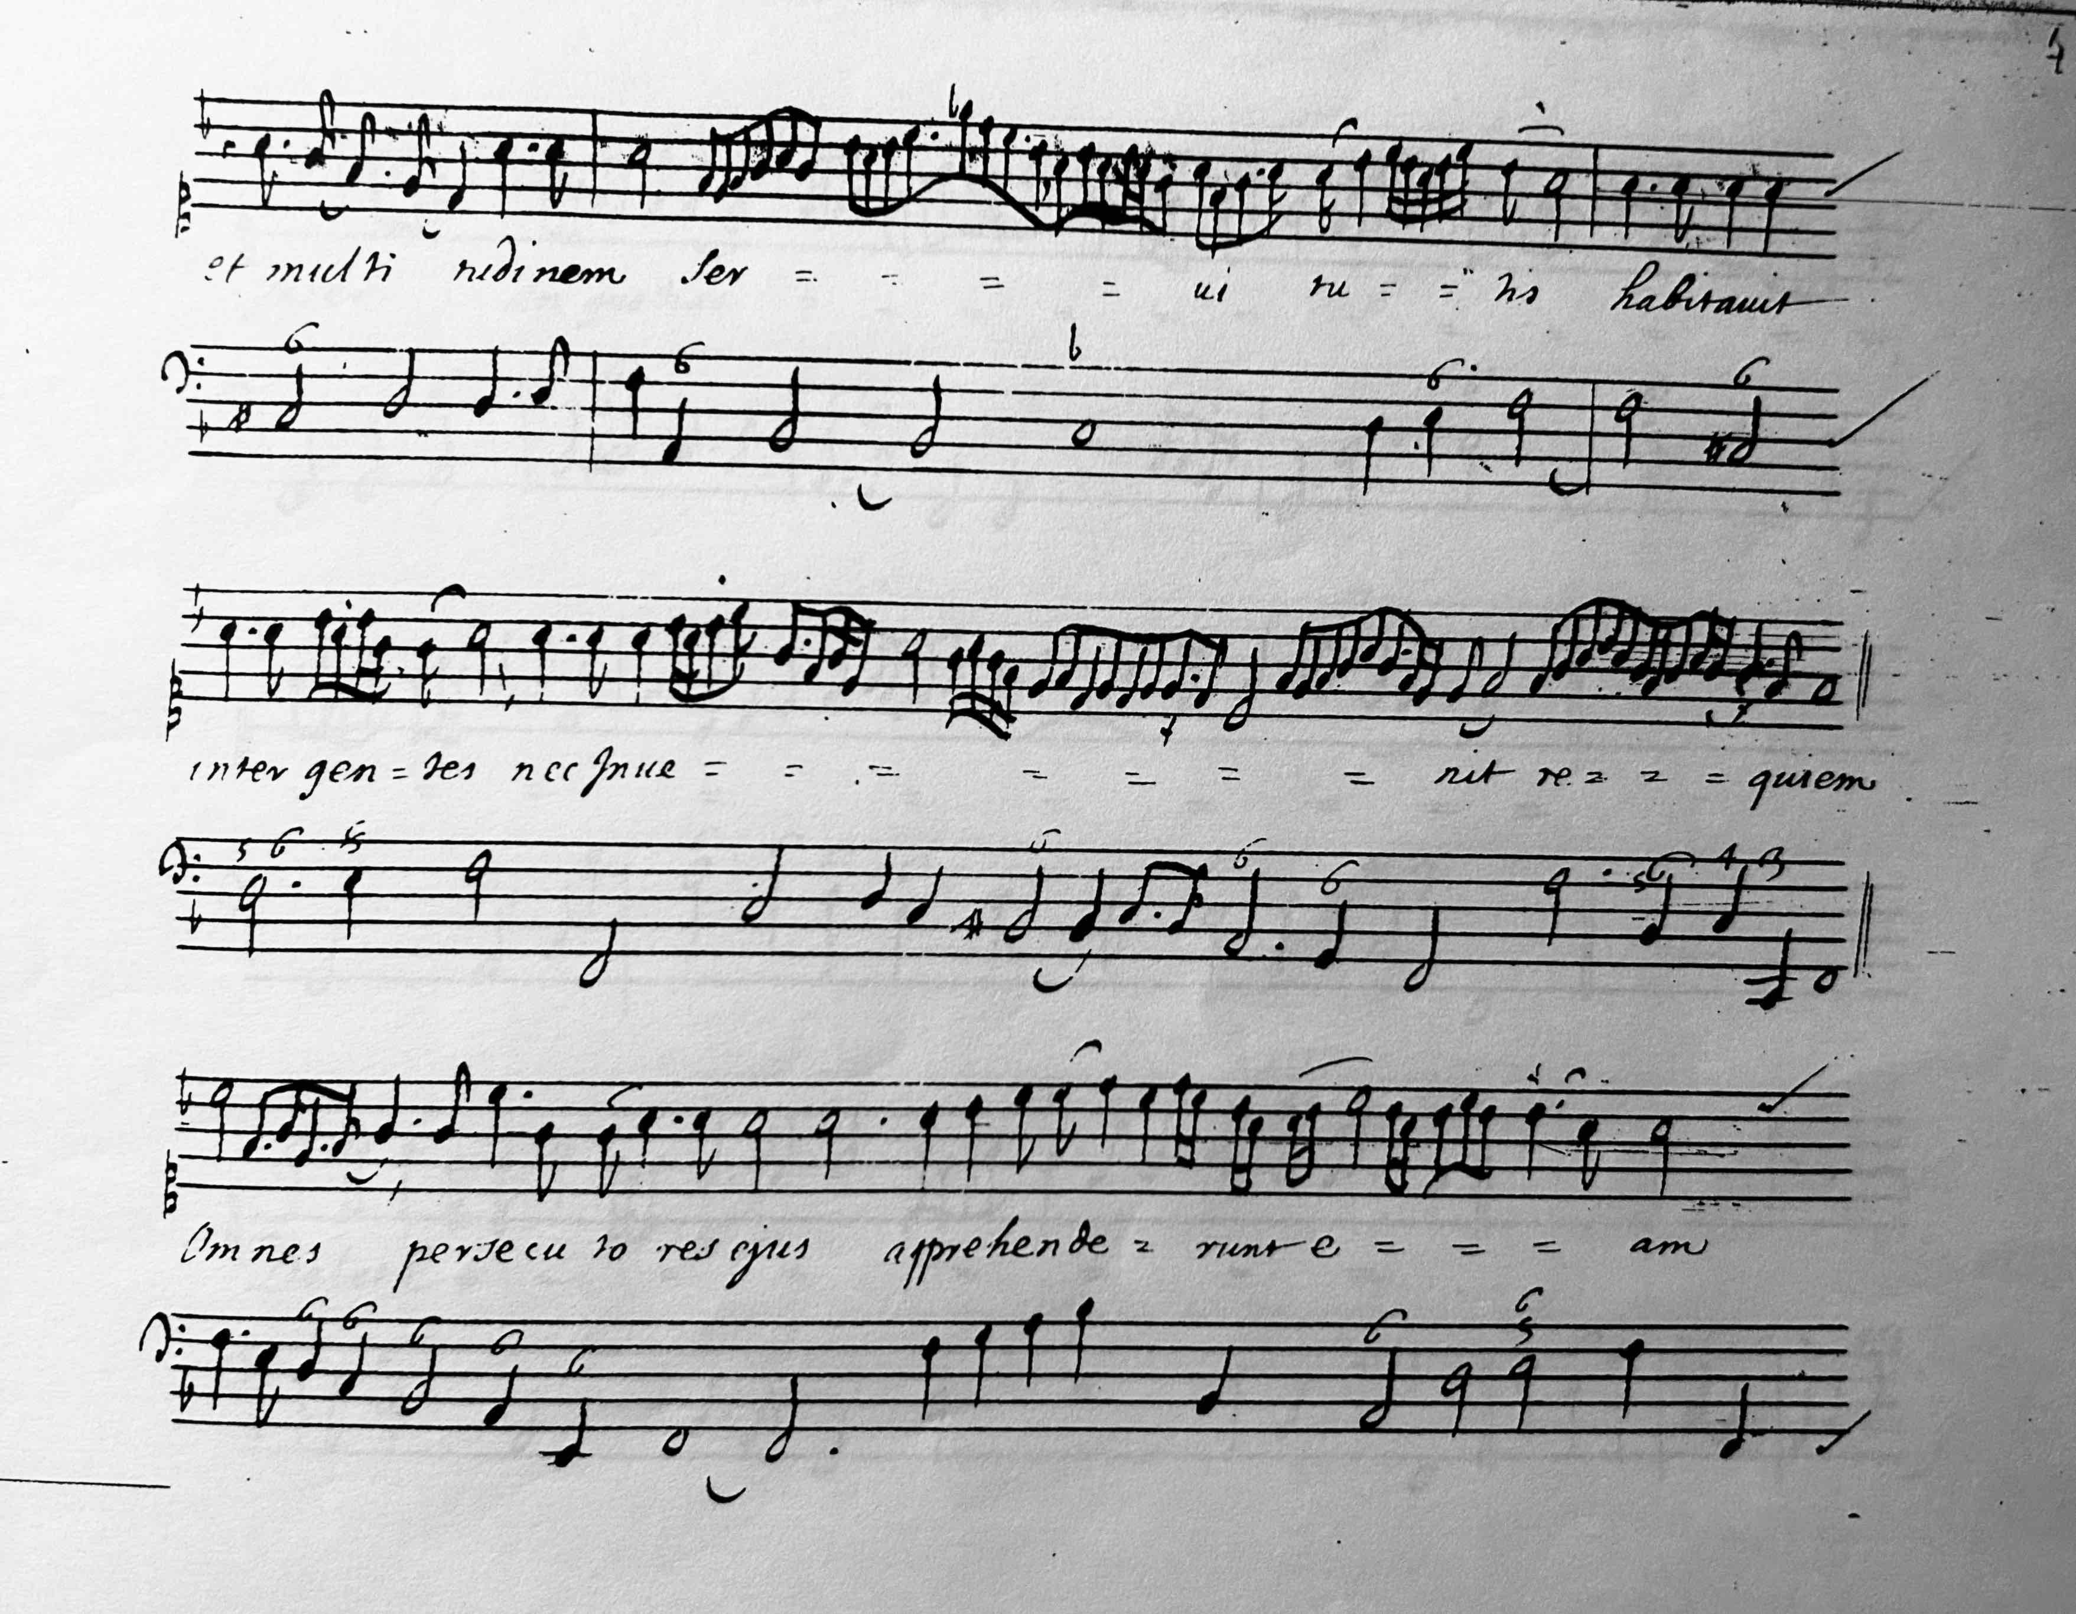 7
et multi tudinem ser = = = = ui tu = = tis habitauit
6 6 b 6 6
inter gen = tes nec Inue = = = = = = = nit re = = = quiem
5 6 5 6 6 6 5 6 4 3
Omnes persecu to res ejus apprehende = runt e = = = am
6 6 6 6 6 6 6 5